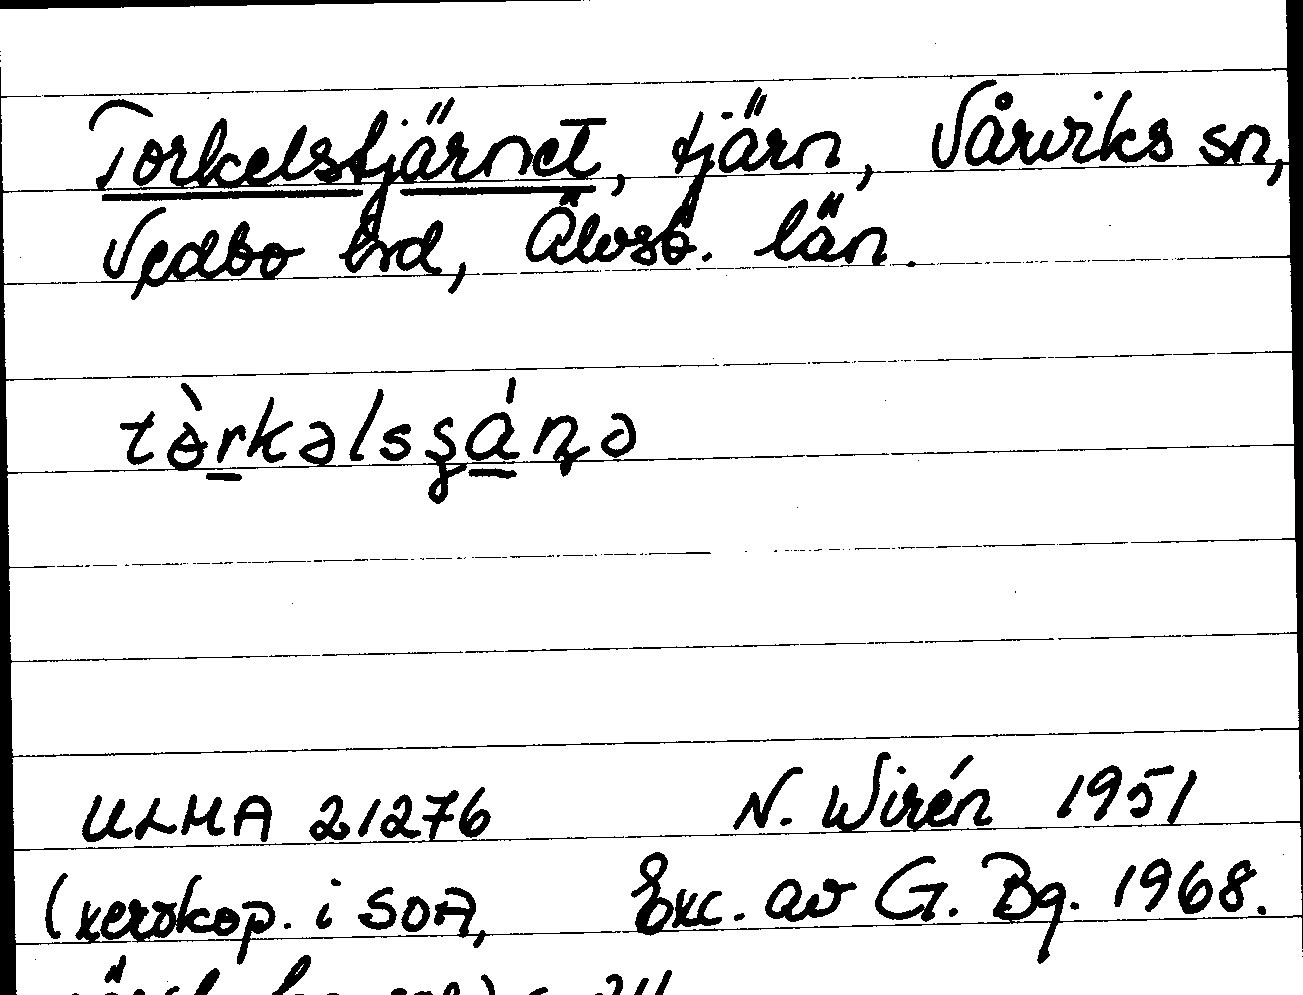 Torkelstjärnet, tjärn, Vårviks sn,
Vedbo hd, Älvsb. län.
tə̀rkəlsʂánə
ULMA 21276
N. Wirén 1951
(xerokop. i SOA,
Exc. av G. Bg. 1968.